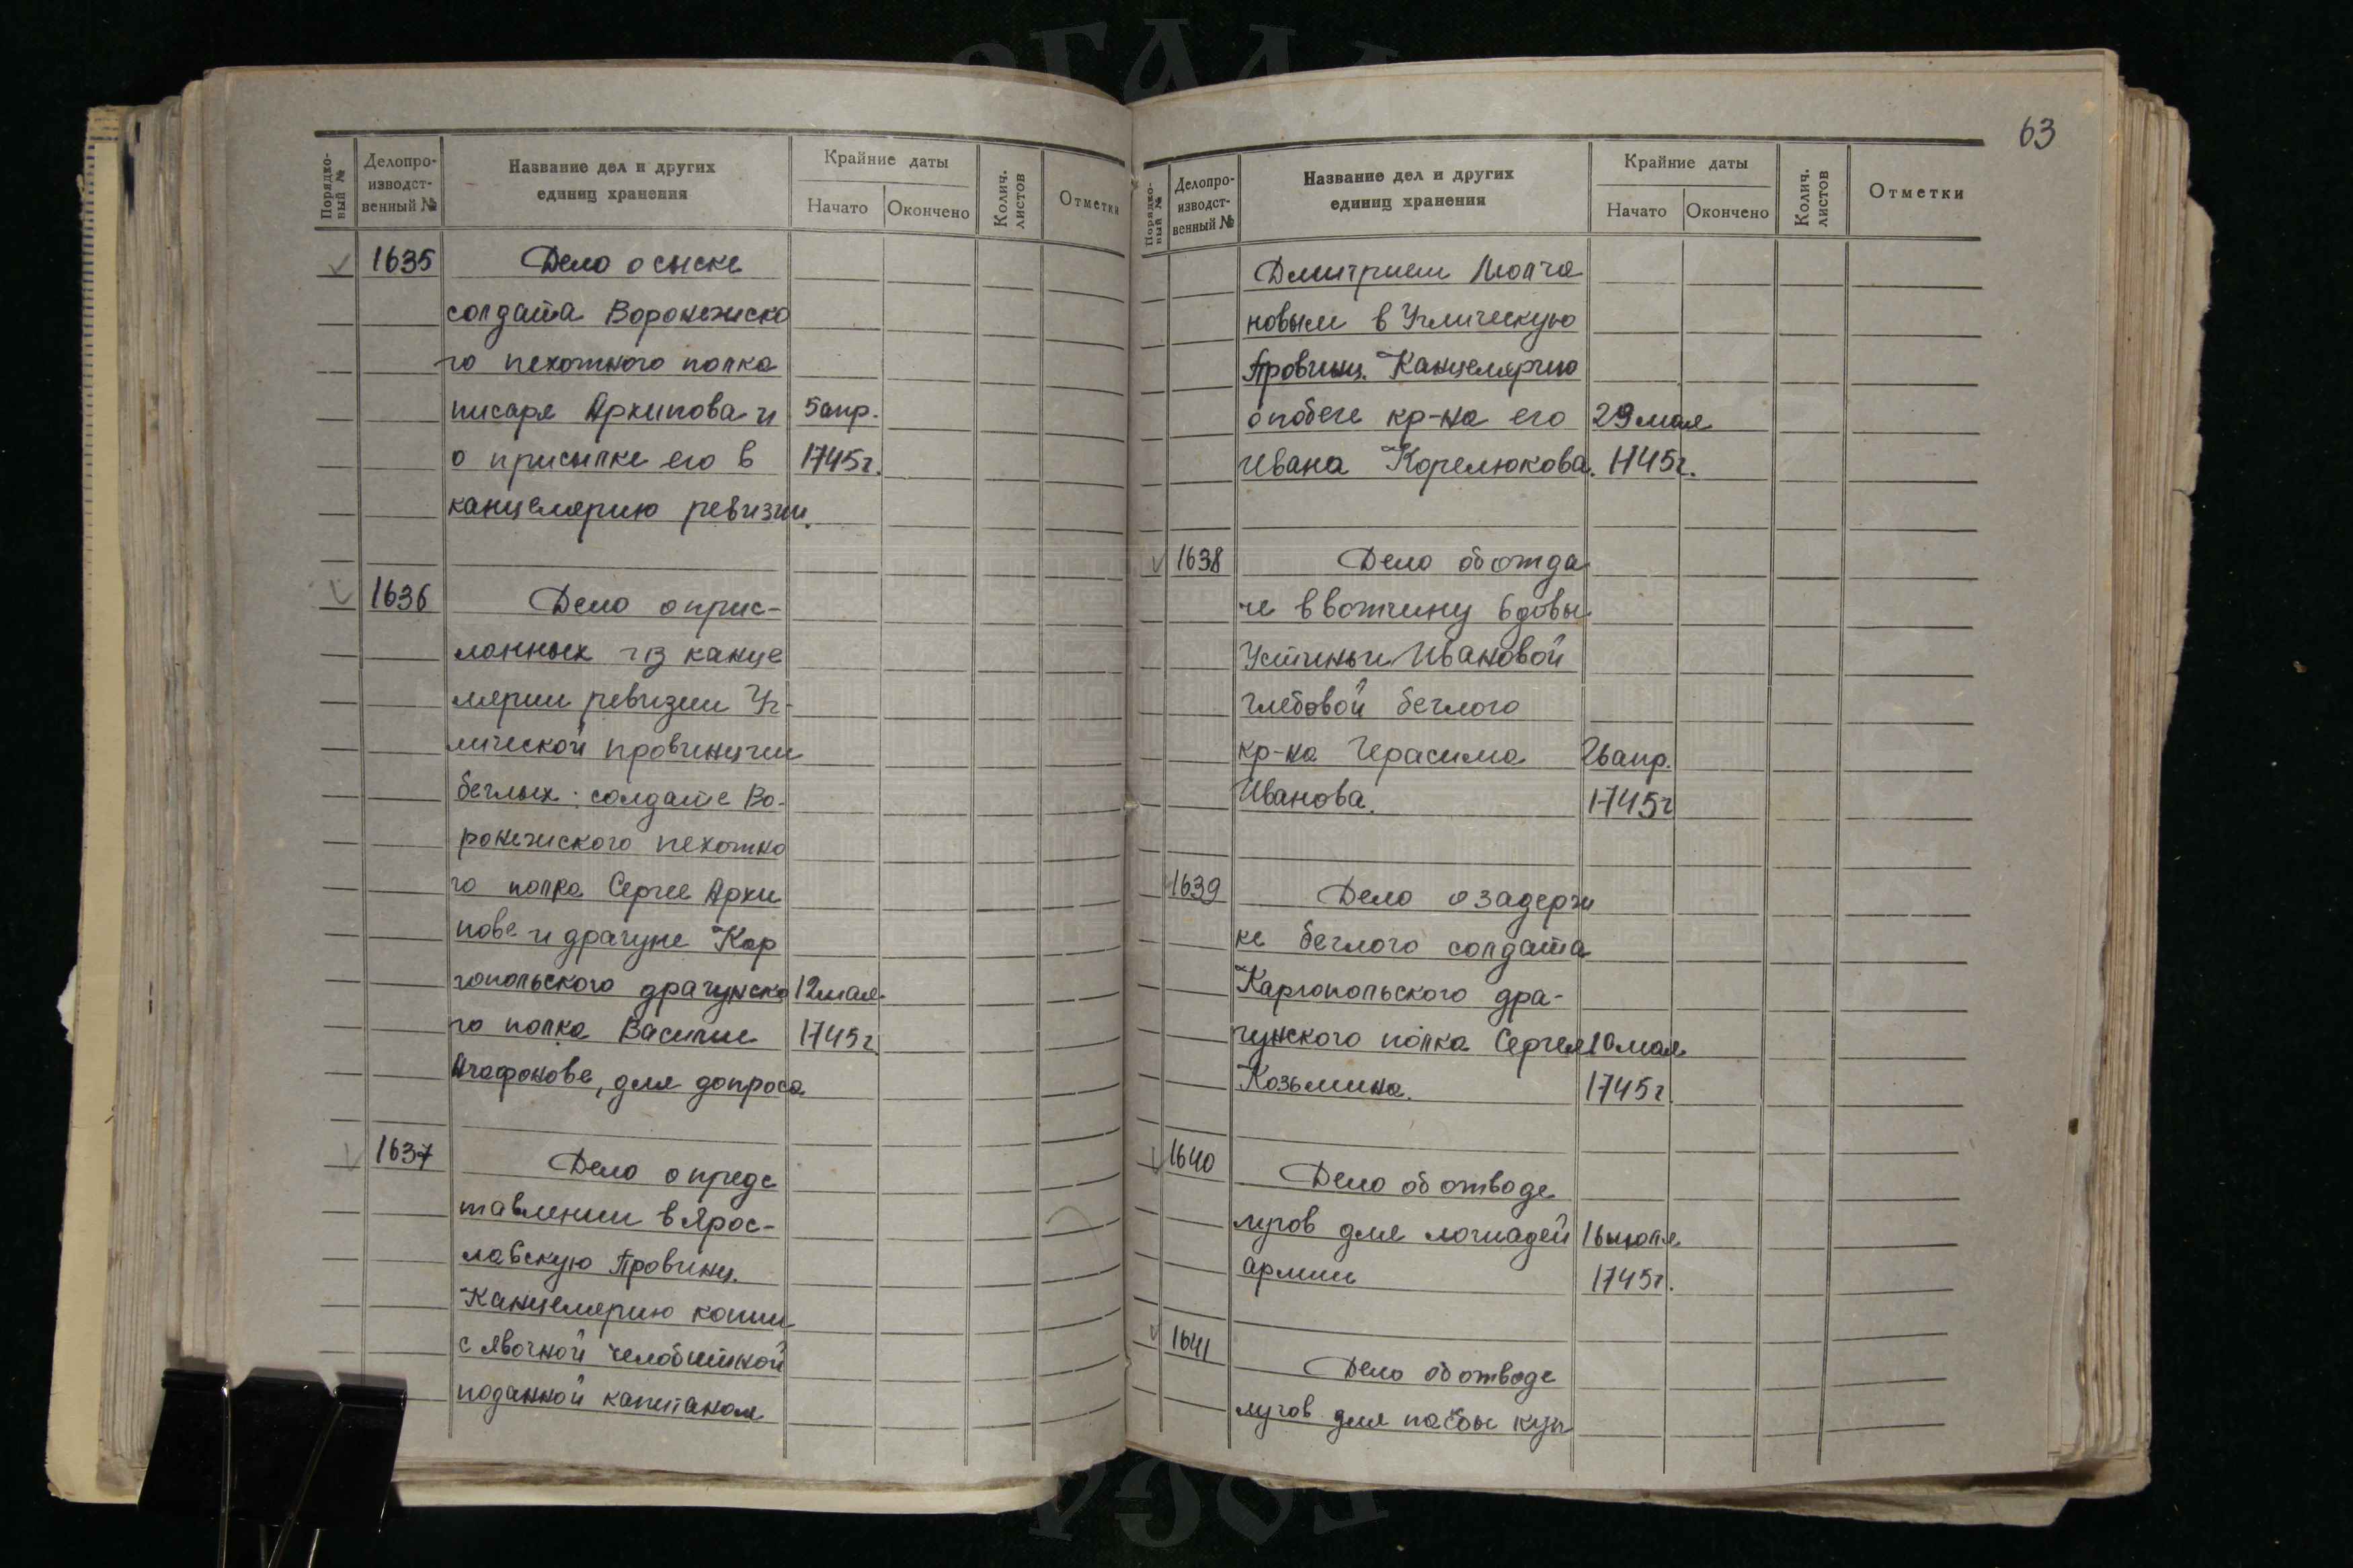 63
Порядко-
вый №
Делопро-
изводст-
венный №
Название дел и других
единиц хранения
Крайние даты
Начато
Окончено
Колич.
листов
Отметки
1635 Дело о сыске
солдата Воронежско
го пехотного полка
писаря Архипова и 5 апр.
о присылке его в 1745г.
канцелярию ревизии.
1636 Дело о прис-
ланных из канце
лярии ревизии Уг-
лической провинции
беглых: солдате Во-
ронежского пехотно
го полка Сергее Архи
пове и драгуне Кар
гопольского драгунско 12 мая
го полка Василие 1745г.
Агафонове, для допроса
1637 Дело о предс
тавлении в Ярос-
лавскую Провинц.
Канцелярию копии
с явочной челобитной
поданной капитаном
Порядко-
вый №
Делопро-
изводст-
венный №
Название дел и других
единиц хранения
Крайние даты
Начато
Окончено
Колич.
листов
Отметки
Дмитрием Молча
новым в Углическую
Провинц. Канцелярию
о побеге кр-на его 29 мая
Ивана Корелюкова. 1745г.
1638 Дело об отда
че в вотчину вдовы
Устиньи Ивановой
Глебовой беглого
кр-на Герасима 26 апр.
Иванова. 1745г
1639 Дело о задерж
ке беглого солдата
Каргопольского дра-
гунского полка Сергея 10 мая
Козьмина. 1745г.
1640 Дело об отводе
лугов для лошадей 16 июля
армии 1745г.
1641 Дело об отводе
лугов для пасбы куп